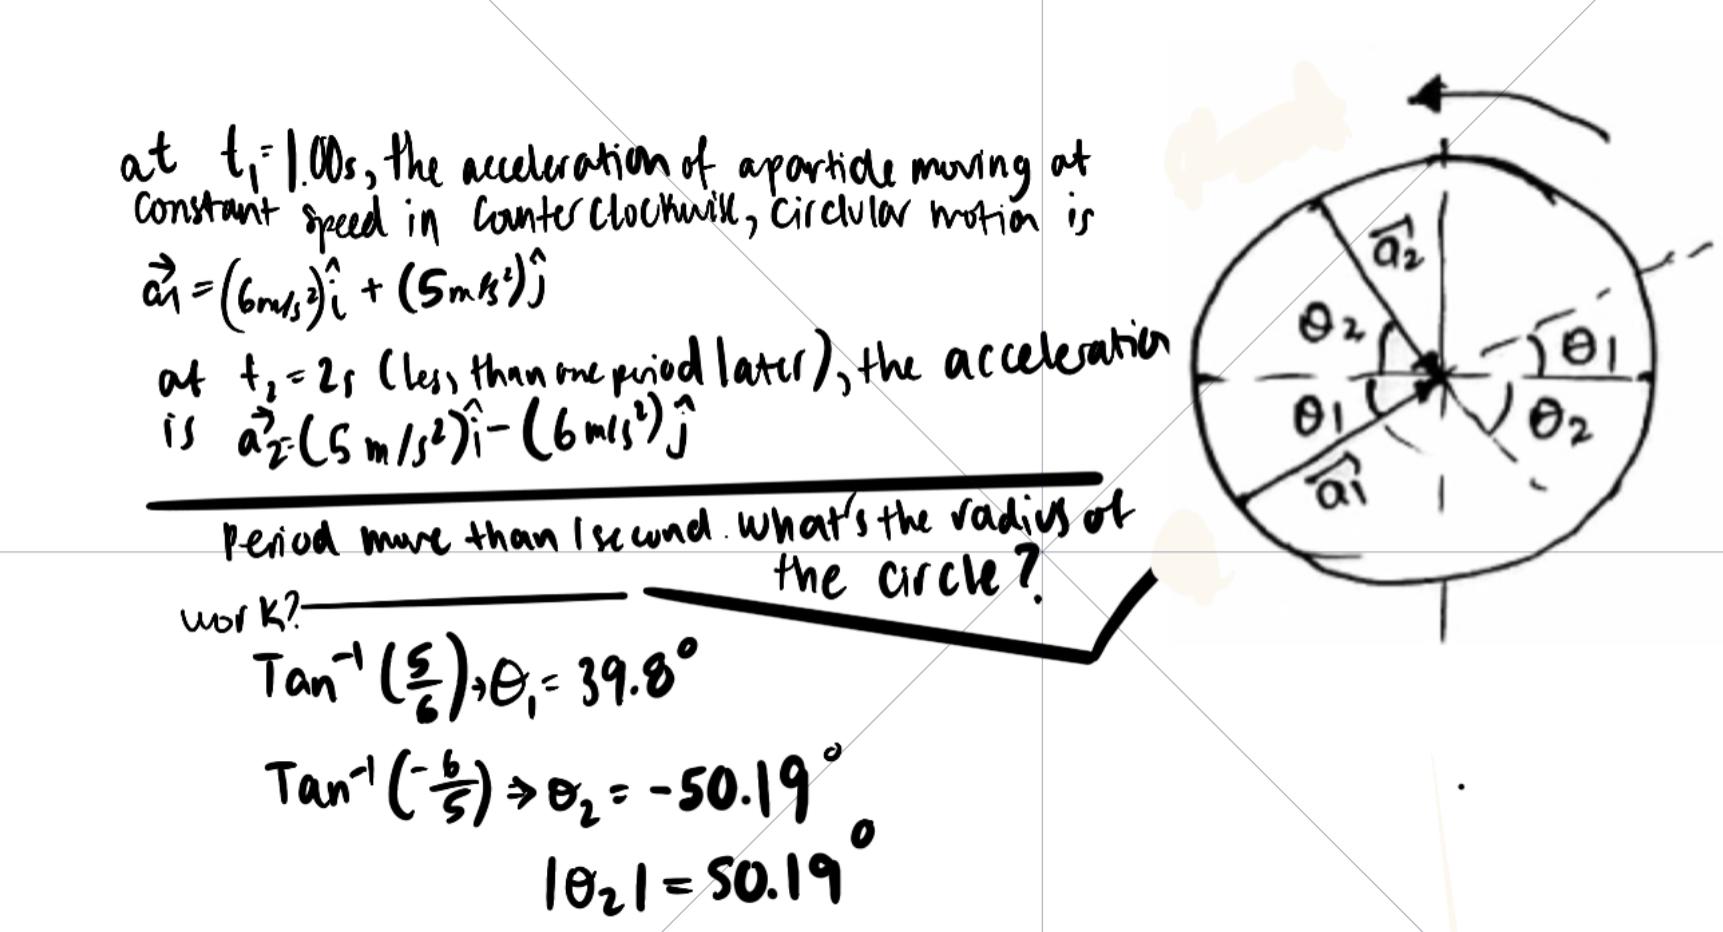 at t₁=1.00s, the acceleration of a particle moving at
constant speed in counterclockwise, circlular motion is
a⃗₁ = (6m/s²)î + (5m/s²)ĵ
at t₂ = 2s (less than one period later), the acceleration
is a⃗₂=(5m/s²)î-(6m/s²)ĵ
Period more than 1 second. What's the radius of
the circle?
work?
Tan⁻¹(5/6)→θ₁= 39.8°
Tan⁻¹(-6/5)⇒θ₂ = -50.19°
|θ₂| = 50.19°
a⃗₂
θ₂
θ₁
θ₁
θ₂
a⃗₁